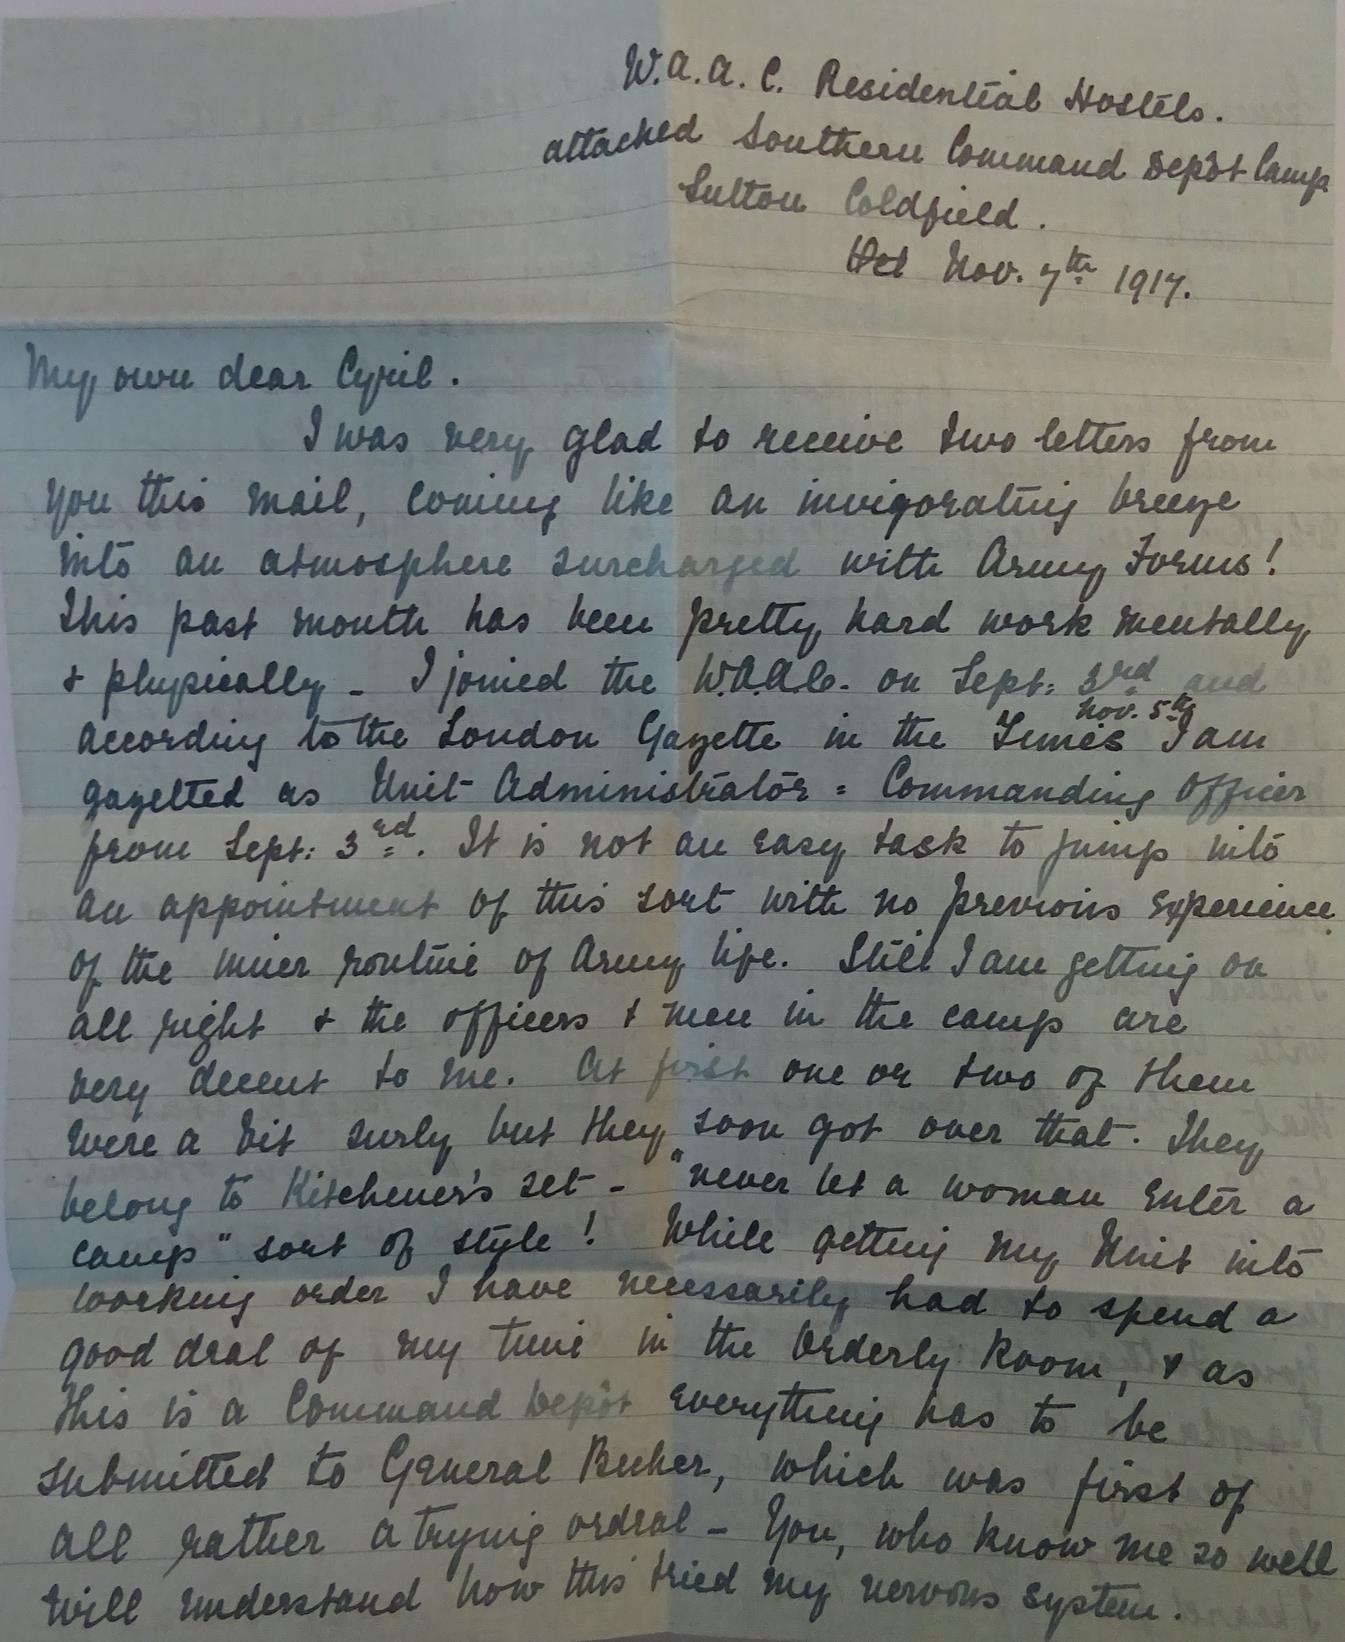 W.A.A.C. Residential Hostels.
attached Southern Command Depôt Camp
Sutton Coldfield.
Oct Nov. 7th 1917.
My own dear Cyril.
I was very glad to receive two letters from
you this mail, coming like an invigorating breeze
into an atmosphere surcharged with Army Forms!
This past month has been pretty hard work mentally
& physically - I joined the W.A.A.C. on Sept: 3rd and
Nov. 5th
according to the London Gazette in the Times I am
gazetted as Unit Administrator = Commanding Officer
from Sept: 3rd. It is not an easy task to jump into
an appointment of this sort with no previous experience
of the inner routine of Army life. Still I am getting on
all right & the officers & men in the camp are
very decent to me. At first one or two of them
were a bit surly but they soon got over that. They
belong to Kitchener's set - "never let a woman enter a
camp" sort of style! While getting my Unit into
working order I have necessarily had to spend a
good deal of my time in the Orderly Room, & as
this is a Command Depôt everything has to be
submitted to General , which was first of
all rather a trying ordeal - You, who know me so well
will understand how this tried my nervous system.